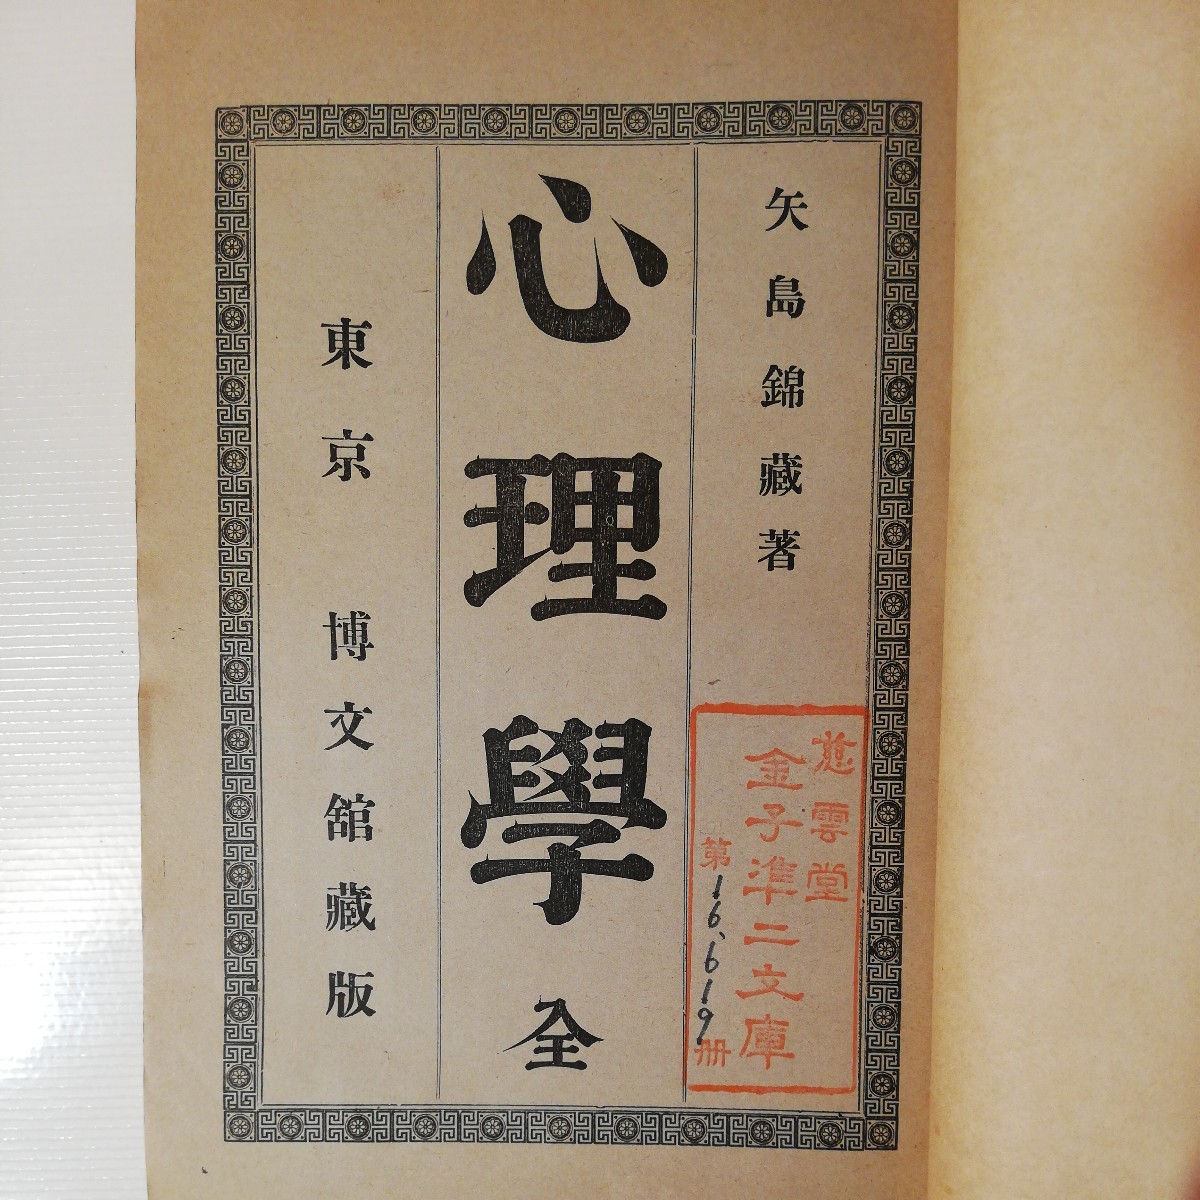 矢島錦藏著
心理學 全
東京 博文舘藏版
慈雲堂
金子準二文庫
第16,619册